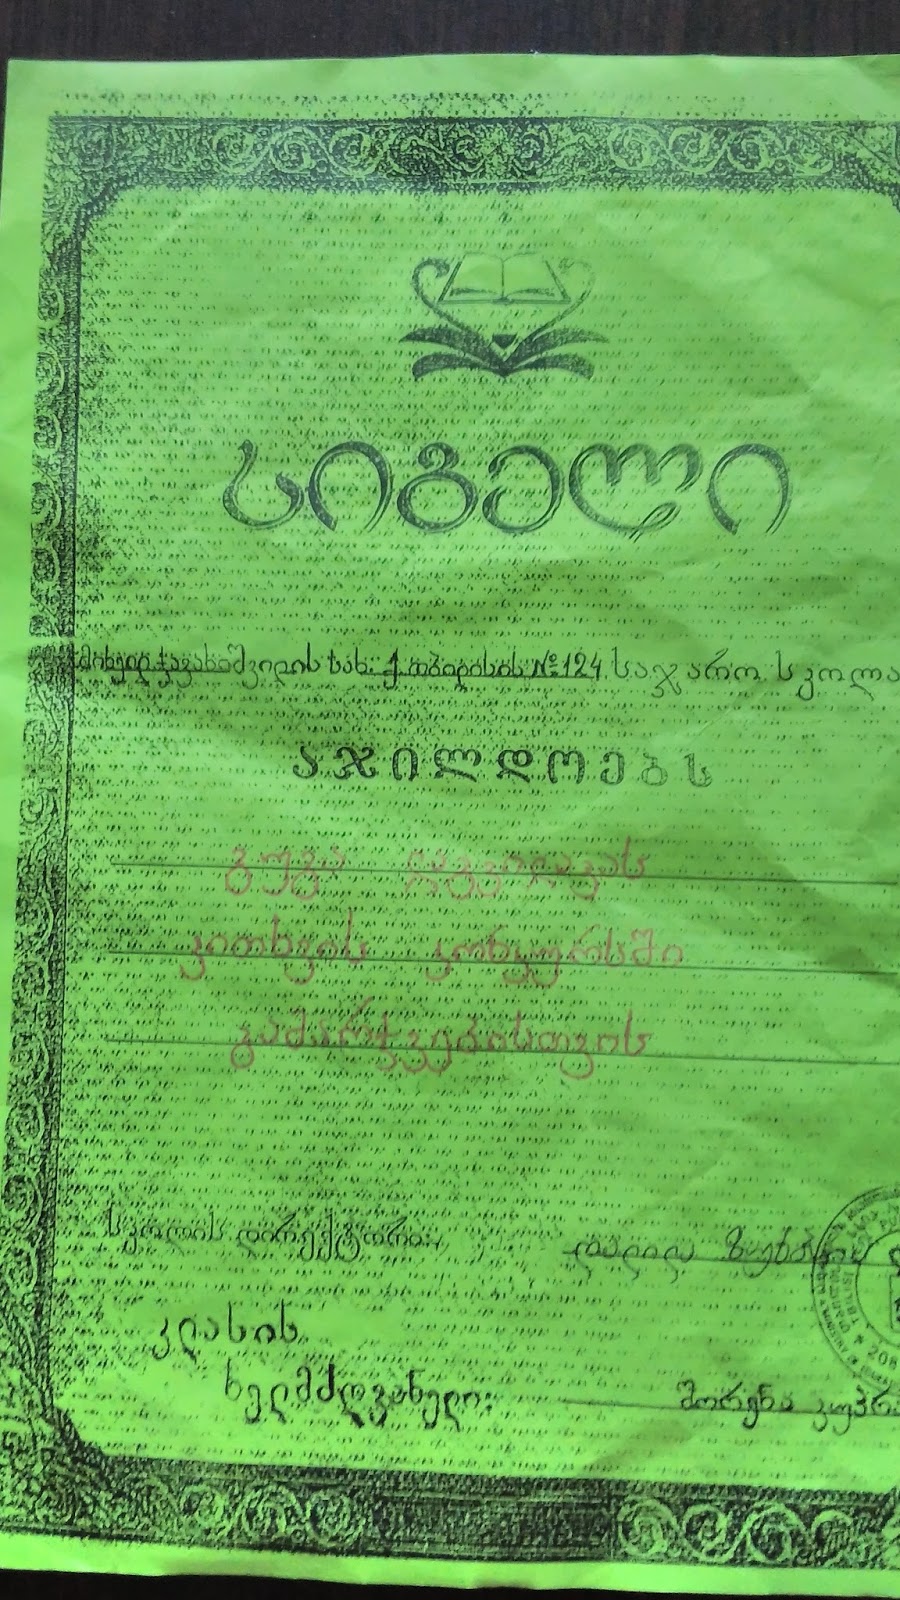 სიგელი
მიხეილ ჯავახიშვილის სახ. ქ. თბილისის №124 საჯარო სკოლა
აჯილდოებს
გუგა
კითხვის კონკურსში
გამარჯვებისთვის
სკოლის დირექტორი:
კლასის
ხელმძღვანელი:
208